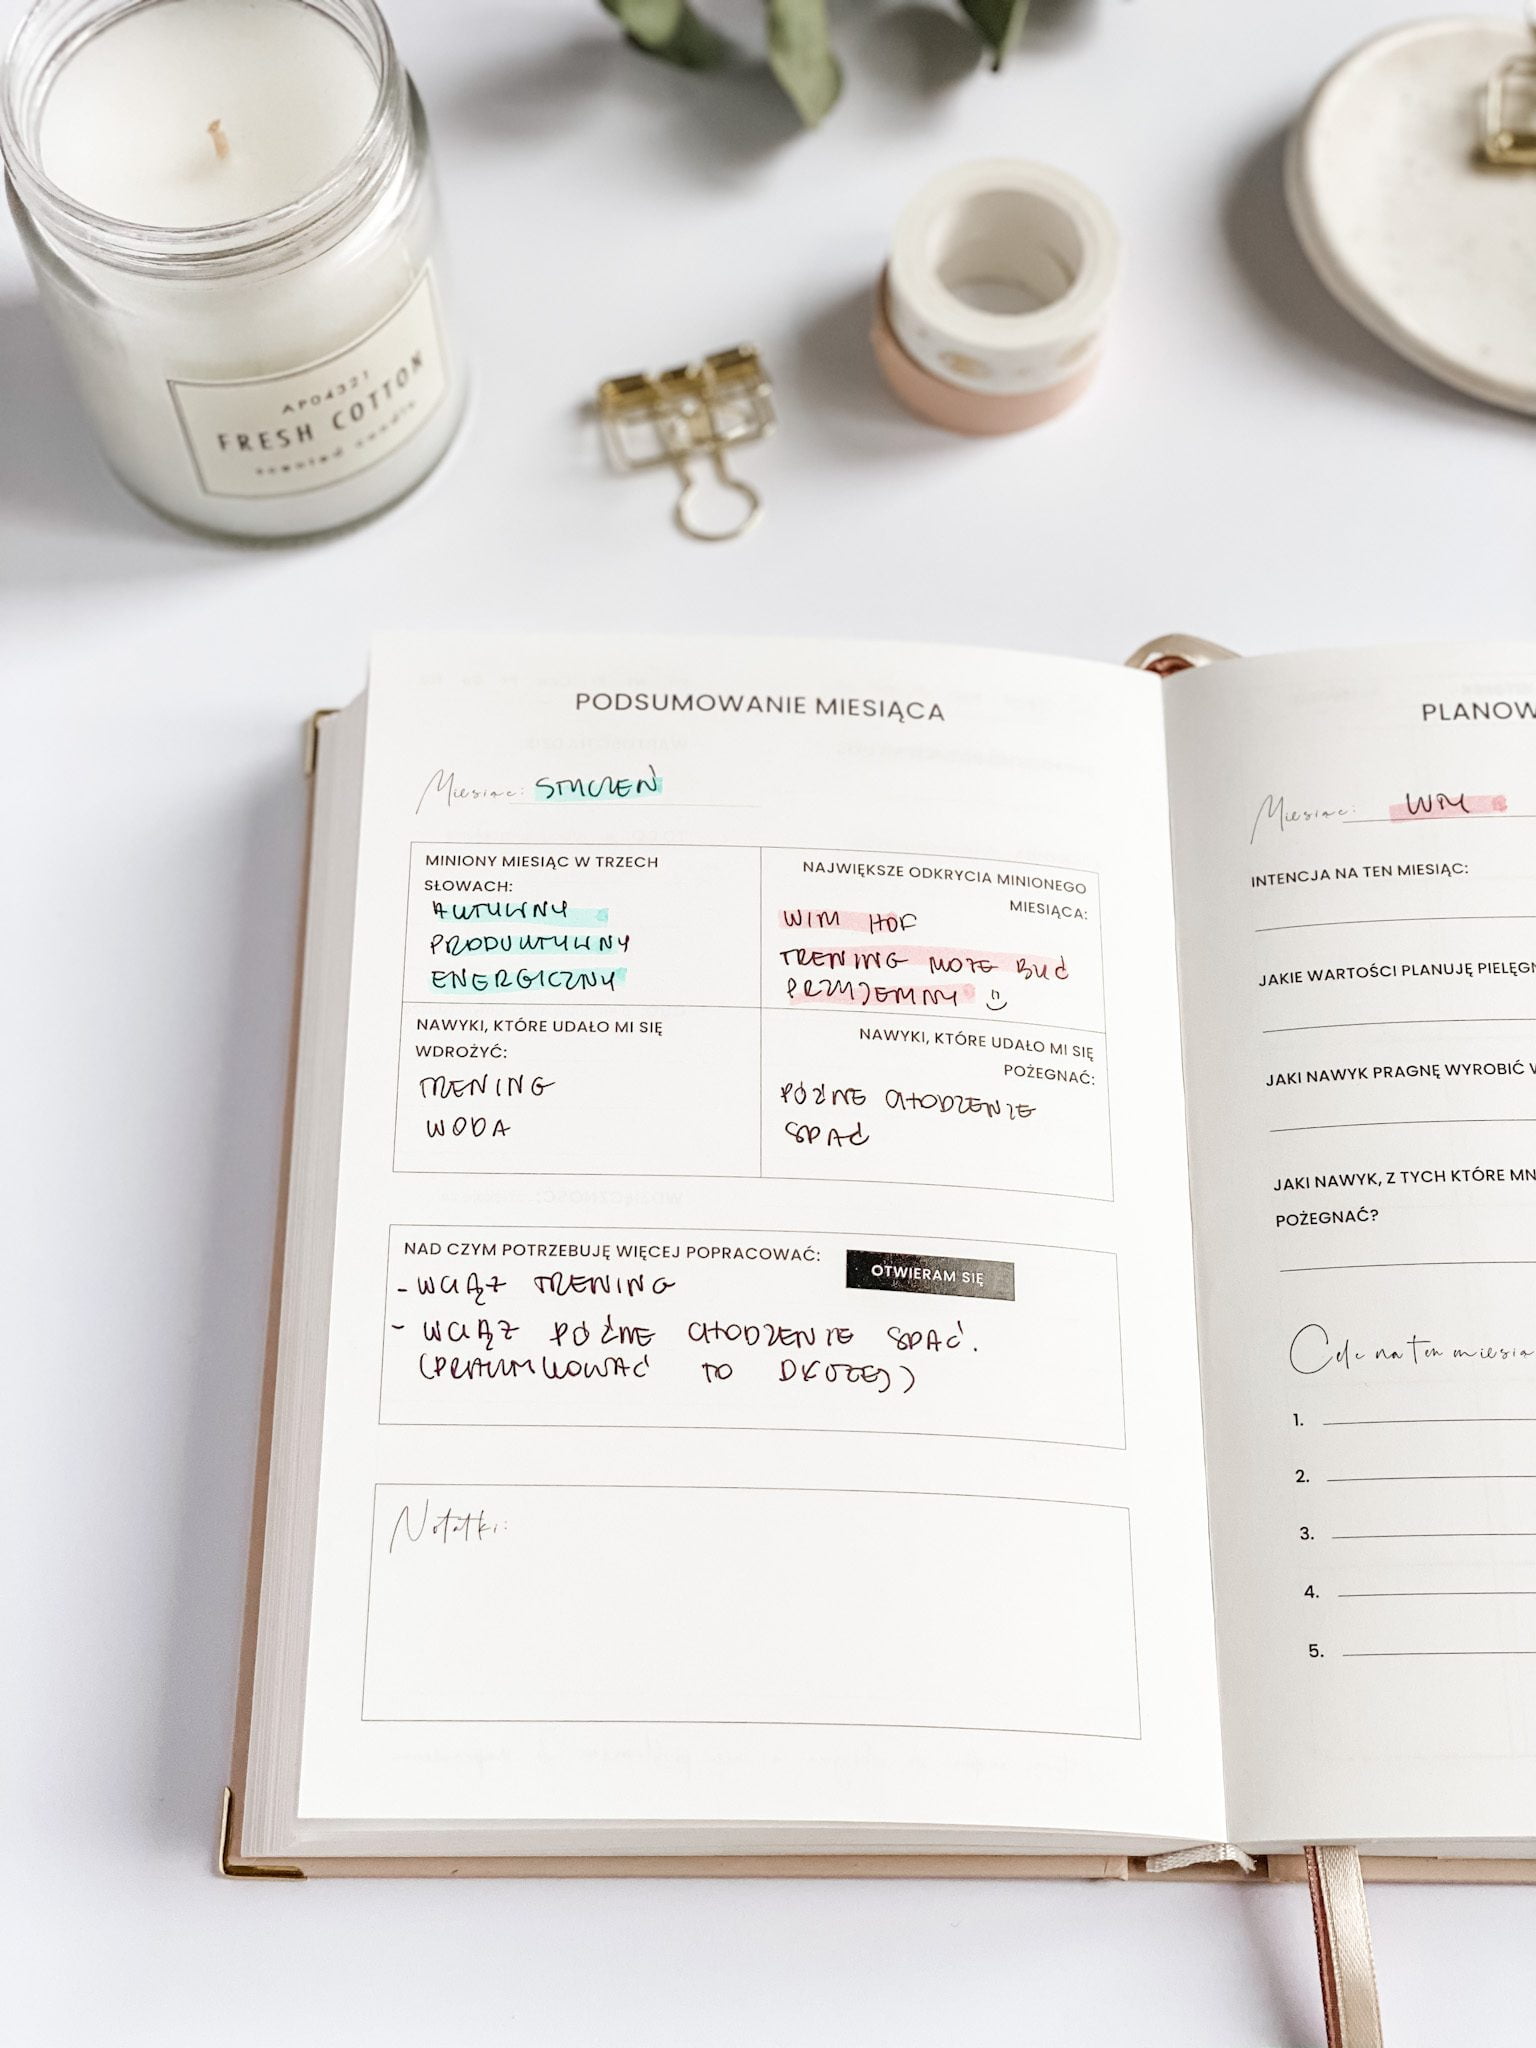 AP04321
FRESH COTTON
scented candle
PODSUMOWANIE MIESIĄCA
Miesiąc: STYCZEŃ
MINIONY MIESIĄC W TRZECH
SŁOWACH:
AKTYWNY
PRODUKTYWNY
ENERGICZNY
NAJWIĘKSZE ODKRYCIA MINIONEGO
MIESIĄCA:
WIM HOF
TRENING MOŻE BYĆ
PRZYJEMNY
NAWYKI, KTÓRE UDAŁO MI SIĘ
WDROŻYĆ:
TRENING
WODA
NAWYKI, KTÓRE UDAŁO MI SIĘ
POŻEGNAĆ:
PÓŹNE CHODZENIE
SPAĆ
NAD CZYM POTRZEBUJĘ WIĘCEJ POPRACOWAĆ:
OTWIERAM SIĘ
- WCIĄŻ TRENING
- WCIĄŻ PÓŹNE CHODZENIE SPAĆ.
(PRAKTYKOWAĆ TO DŁUŻEJ)
Notatki:
PLANOW
Miesiąc: LUTY
INTENCJA NA TEN MIESIĄC:
JAKIE WARTOŚCI PLANUJĘ PIELĘGN
JAKI NAWYK PRAGNĘ WYROBIĆ W
JAKI NAWYK, Z TYCH KTÓRE MN
POŻEGNAĆ?
Cele na ten miesią
1.
2.
3.
4.
5.